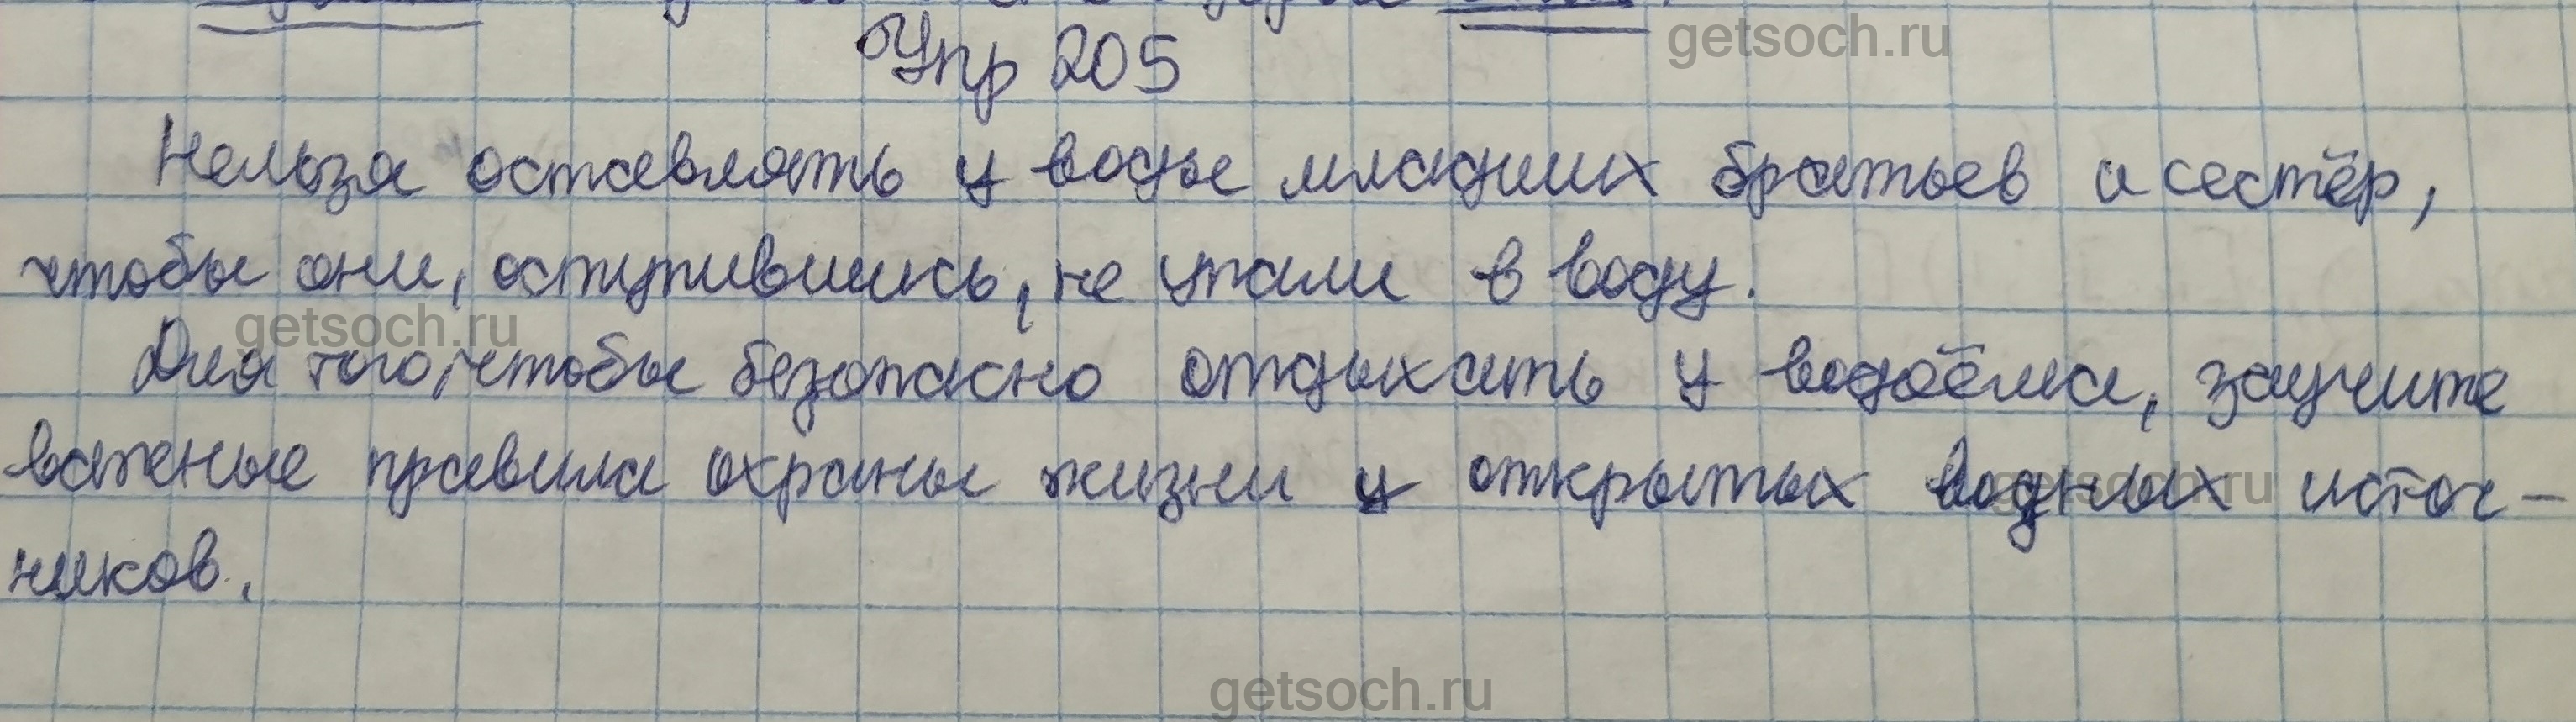 getsoch.ru
Упр 205
Нельзя оставлять у воды младших братьев и сестёр,
чтобы они, оступившись, не упали в воду.
getsoch.ru
Для того, чтобы безопасно отдыхать у водоёма, заучите
важные правила охраны жизни у открытых водных источ-
getsoch.ru
ников.
getsoch.ru